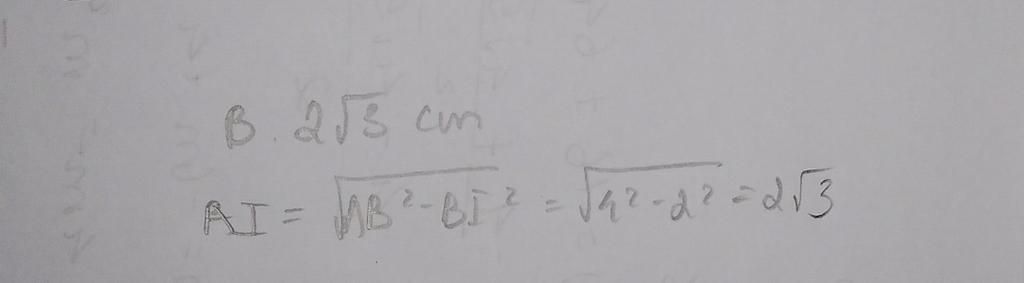 B. 2√3 cm
AI = √AB² - BI² = √4² - 2² = 2√3